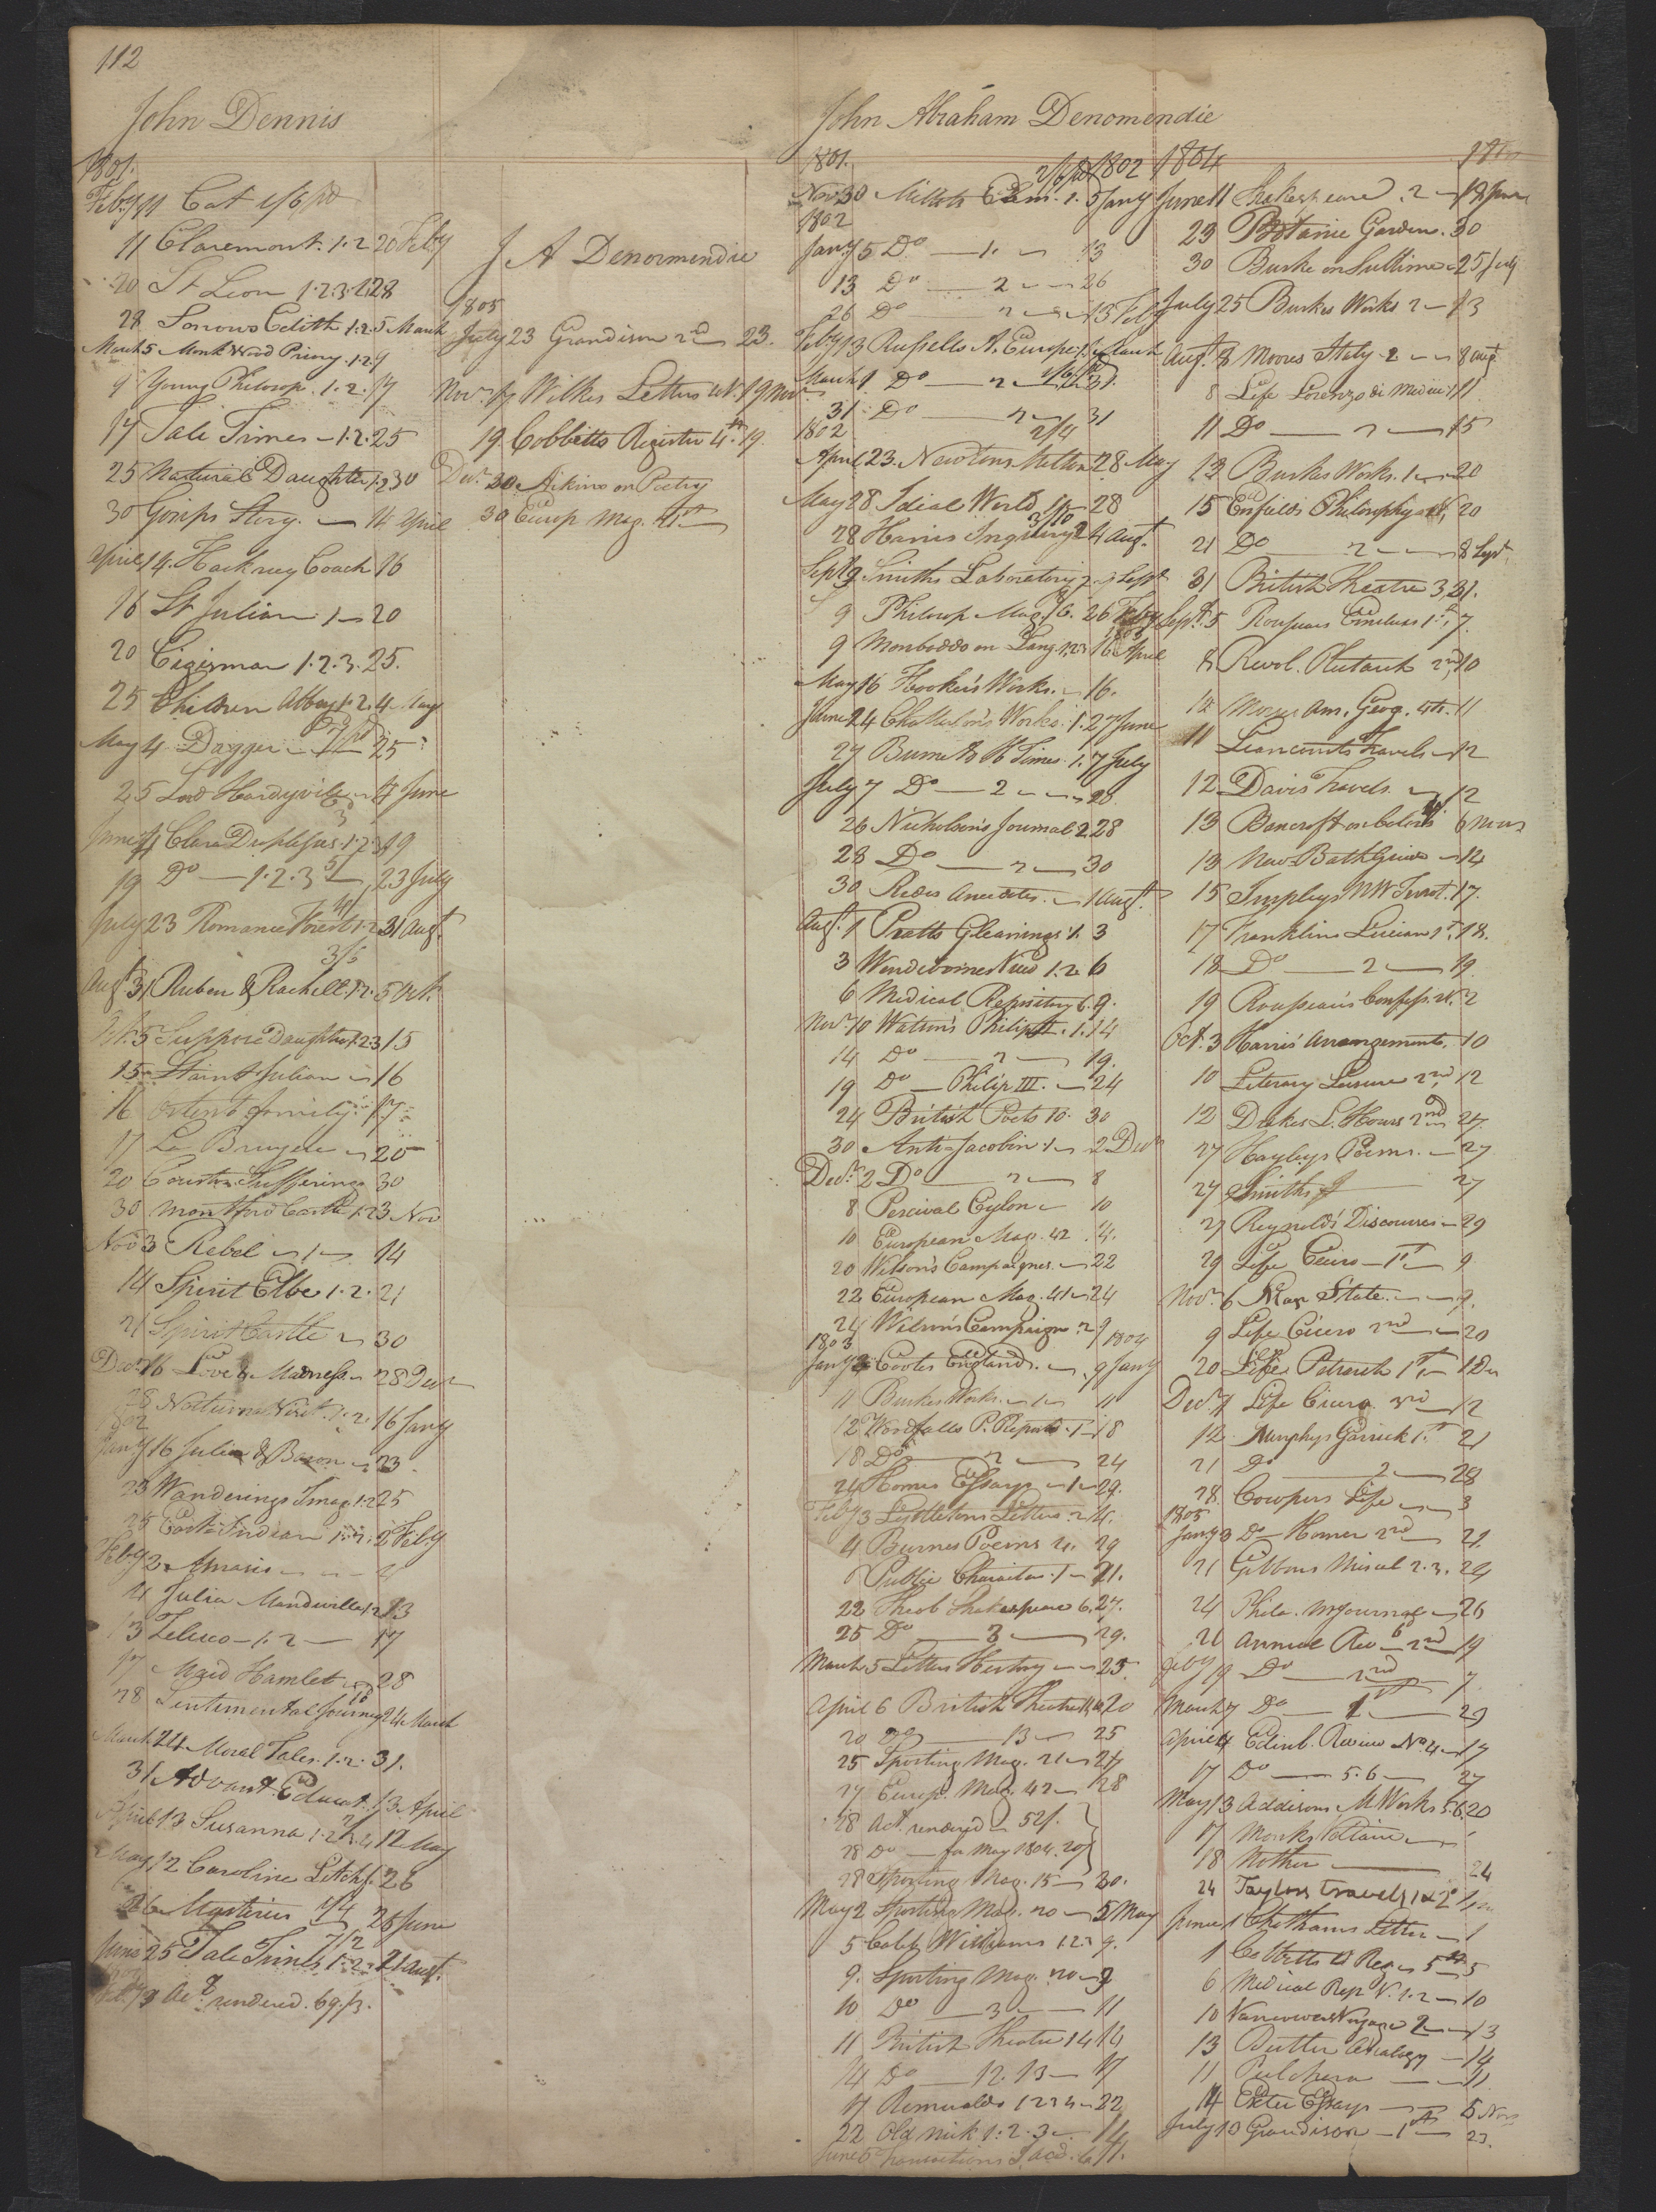 112
John Dennis
1801.
Feby 11 Cat 1/6 pd
11 Claremont. 1.2 20 Feby
20 St Leon 1.2.3. 28
28 Sorrows Edith 1.2. 5 March
March 5 Monk Wood Priory. 1.2. 9
9 Young Philosop. 1.2. 17
17 Tale Times 1.2. 25
25 Natural Daughter 1.2 30
30 Gossips Story. 14 April
April 14. Hackney Coach 16
16 St Julian 1 20
20 Cigisman 1.2.3. 25.
25 Children Abbey 1.2. 4 May
May 4 Dagger 25
25 Lord Hardyville 4 June
June 4 Clara Duplessis. 1.2.3 19
19 Do 1.2.3 23 July
July 23 Romance Forest 1.2 31 Augt.
3/5
Augt 31 Ruben & Rachell. 1.2. 5 Oct.
Oct. 5 Suppose Daughter 1.2.3 15
15 Saint Julian 16
16 Ortenb family 17
17 La Bruyere 20
20 Courton Sufferings 30
30 Montford Castle 1.2 3 Nov
Nov 3 Rebel 1 14
14 Spirit Elbe 1.2. 21
21 Spirit Castle 30
Decr 16 Love & Madness 28 Decr
28 Nocturnal Visit. 1.2. 16 Jany
1802
Jany 16 Julia & Baron 23
23 Wanderings Imag. 1.2 25
25 East Indian 1.2. 2 Feby
Feby 2 Amasis 4
4 Julia Mandeville 1.2 13
13 Zeluco 1.2 17
17 Maid Hamlet 28
28 Sentimental Journey 24 March
March 24 Moral Tales. 1.2. 31.
31 Advant. Educat. 13 April
April 13 Susanna 1.2.3.4 12 May
May 12 Caroline Litchf. 26
26 Mysteries 1/4 25 June
7/2
June 25 Tale Times 1.2. 21 Augt.
Act. rendered. 69/3.
J A Denormendie
1805
July 23 Grandison 2nd 23.
Novr. 17 Wilkes Letters 19 Nov
19 Cobbetts Register 4th. 19.
Decr. 20 Aikins on Poetry
30 Europ Mag. 41st
John Abraham Denomendie
1801. 1802
Nov 30 Millots Elem. 1. 5 Jany
1802
Jany 5 Do 1. 13
13 Do 2 26
26 Do 2 13 Feb
Feby 13 Russells A. Europe 1. March
March 1 Do 2 31.
31 Do 2 31
1802 2/4
April 23. Newtons Milton 28 May
May 28 Ideal World 28
3/10
28 Harris Inquiry 2 4 Augt.
Sept 2 Smiths Laboratory 2 9 Sept
9 Philosop Mag. 16. 26 Feby
9 Monboddo on Lang. 1.2.3 16 April
May 16 Hooker's Works. 16.
June 24 Chatterton's Works. 1. 27 June
27 Burnet H Times. 1. 7 July
July 7 Do 2 26
26 Nicholson's Journal 2 28
28 Do 2 30
30 Redes Anecdotes. 1 Augt.
Augt. 1 Pratts Gleanings 1. 3
3 Wendeborne's View 1.2. 6
6 Medical Repository 6. 9.
Novr 10 Watson's Philip II. 1. 14
14 Do 2 19.
19 Do Philip III. 24
24 British Poets 10. 30
30 Anti-Jacobin 1 2 Decr
Decr. 2 Do 2 8
8 Percival Ceylon 10
10 European Mag. 42 14.
20 Wilson's Campaigns. 22
22 European Mag. 41 24
24 Wilson's Campaign 2 9
1803 1804
Jany 2 Cootes England. 9 Jany
11 Burkes Works 1 11
12 Woodfalls P. Reports. 1 18
18 Do 2 24
24 Homes Essays 1 29.
Feby 3 Lyttletons Letters 2 4.
4 Burnes Poems 2. 29
Public Characters 1 21.
22 Theob Shakespeare 6. 27.
25 Do 3 29.
March 5 Letters History 25.
April 6 British Theatre 20
20 Do 13 25
25 Sporting Mag. 21 27
27 Europ. Mag. 42 28
28 Act. rendered 52/.
28 Do for May 1804. 20/
28 Sporting Mag. 15 30.
May 2 Sporting Mag. 20 5 May
5 Caleb Williams 1.2. 9.
9. Sporting Mag. 20 9
10 Do 3 11
11 British Theatre 14 14
14 Do 12.13 17
17 Romualdo 1 2 3 4 22
22 Old Nick 1.2.3 14
June 5 Transactions S. Acd. 6 11.
1804
June 11 Shakespeare. 2 18 June
23 Botanic Garden. 30
30 Burke on Sublime 25 July
July 25 Burkes Works 2 13
Augt. 3 Moores Italy 2 8 augt
8 Life Lorenzo di Medici 1 11
11 Do 2 15
13 Burkes Works. 1 20
15 Enfields Philosophy 20
21 Do 2 8 Sept.
31 British Theatre 3, 31.
Sept. 5 Rousseaus Emelius 1st, 7.
8 Revol. Plutarch 2nd 10
10 Morses Am. Geog. 4th. 11
11 Liancourts Travels 12
12 Davis Travels. 12
13 Bancroft on Colors 6 mos
13 New Bath Guide 14
15 Murphys 17.
17 Franklins Lucian 1st, 18.
18 Do 2 19.
19 Rousseau's Confess. 2
Oct. 3 Harris' Arrangements. 10
10 Literary Leisure 2nd, 12
12 Drakes L. Hours 2nd 27.
27 Hayleys Poems. 27
27 Smiths J 27
27 Reynolds' Discourses 29
29 Life Cicero 1st 9
Novr. 6 Man State. 9.
9 Life Cicero 2nd 20
20 Life Petrarch 1st 1 Dec
Decr. 7 Life Cicero 3rd 12
12 Murphys Garrick 1st. 21
21 Do 2 28
28. Cowpers Life 3
1805
Jany 3 Do Homer 2nd 21.
21 Gibbons Miscel 2.3. 24
24 Phila. M Journal 26
26 Annual Rev 2nd 19
Feby 19 Do 2nd 7
March 7 Do 1st 29
April 4 Edinb. Review No. 4 17
17 Do 5.6 27
May 13 Addisons M Works 5.6. 20
17 Monks Poltaire
18 Mother 24
24 Taylors travels 1 & 2
June 1 Chathams Letters 1
1 Cobbetts Reg 5th 5
6 Medical Rep V. 1.2 10
10 Vancouvers Voyage 2 13
13 Butler Analogy 14
11 Pulchera 11
14 Exeter Essays 5 Nov
July 10 Grandison 1st 23.